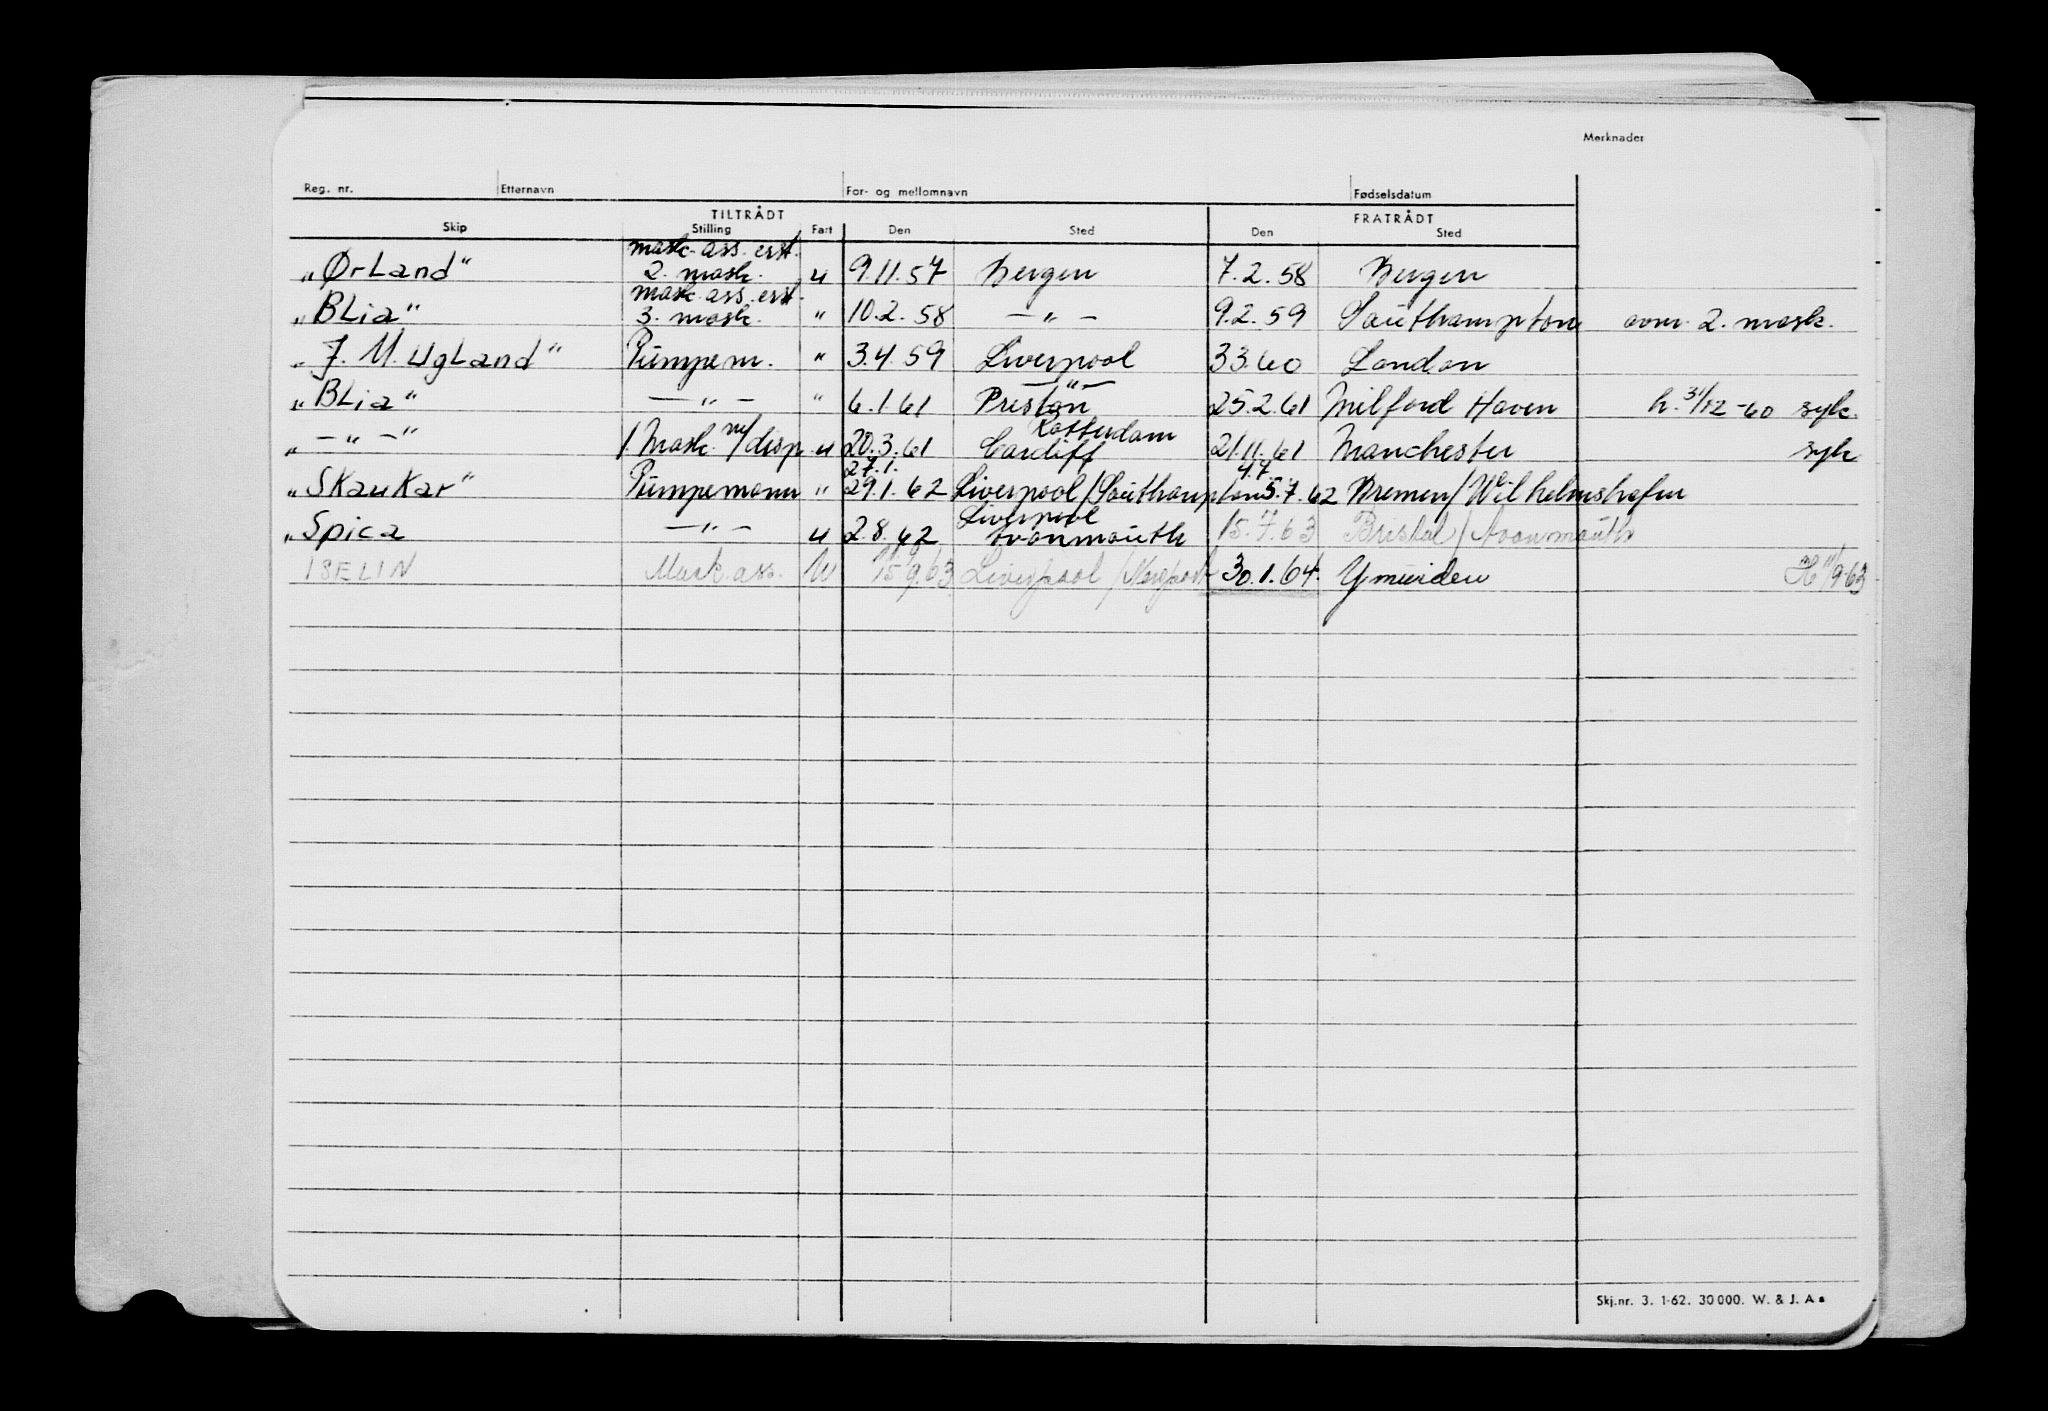 Merknader
Reg. nr. Etternavn For- og mellomnavn Fødselsdatum
TILTRÅDT FRATRÅDT
Skip Stilling Fart Den Sted Den Sted
"Ørland" mask. ass. erst. 2. mask. u 9.11.57 Bergen 7.2.58 Bergen
"BLia" mask. ass. erst. 3. mask. " 10.2.58 — " — 9.2.59 Southampton avm. 2. mask.
"J. M. Ugland" Pumpem. " 3.4.59 Liverpool 3.3.60 London
"BLia" — " — " 6.1.61 — " — Preston 25.2.61 Milford Haven h. 31/12-60 syk.
" — " — " 1. Mask. m/disp u 20.3.61 Rotterdam Cardiff 21.11.61 Manchester syk
"Skaukar" Pumpemann " 27.1. 29.1.62 Liverpool/Southampton 4.7 5.7.62 Bremen/Wilhelmshafen
"Spica — " — u 2.8.62 Liverpool Avonmouth 15.7.63 Bristol/Avonmouth
ISELIN Mask. ass. U 15.9.63 Liverpool/Newport 30.1.64. Ymuiden H 11/9-63
Skj.nr. 3. 1-62. 30 000. W. & J. A s